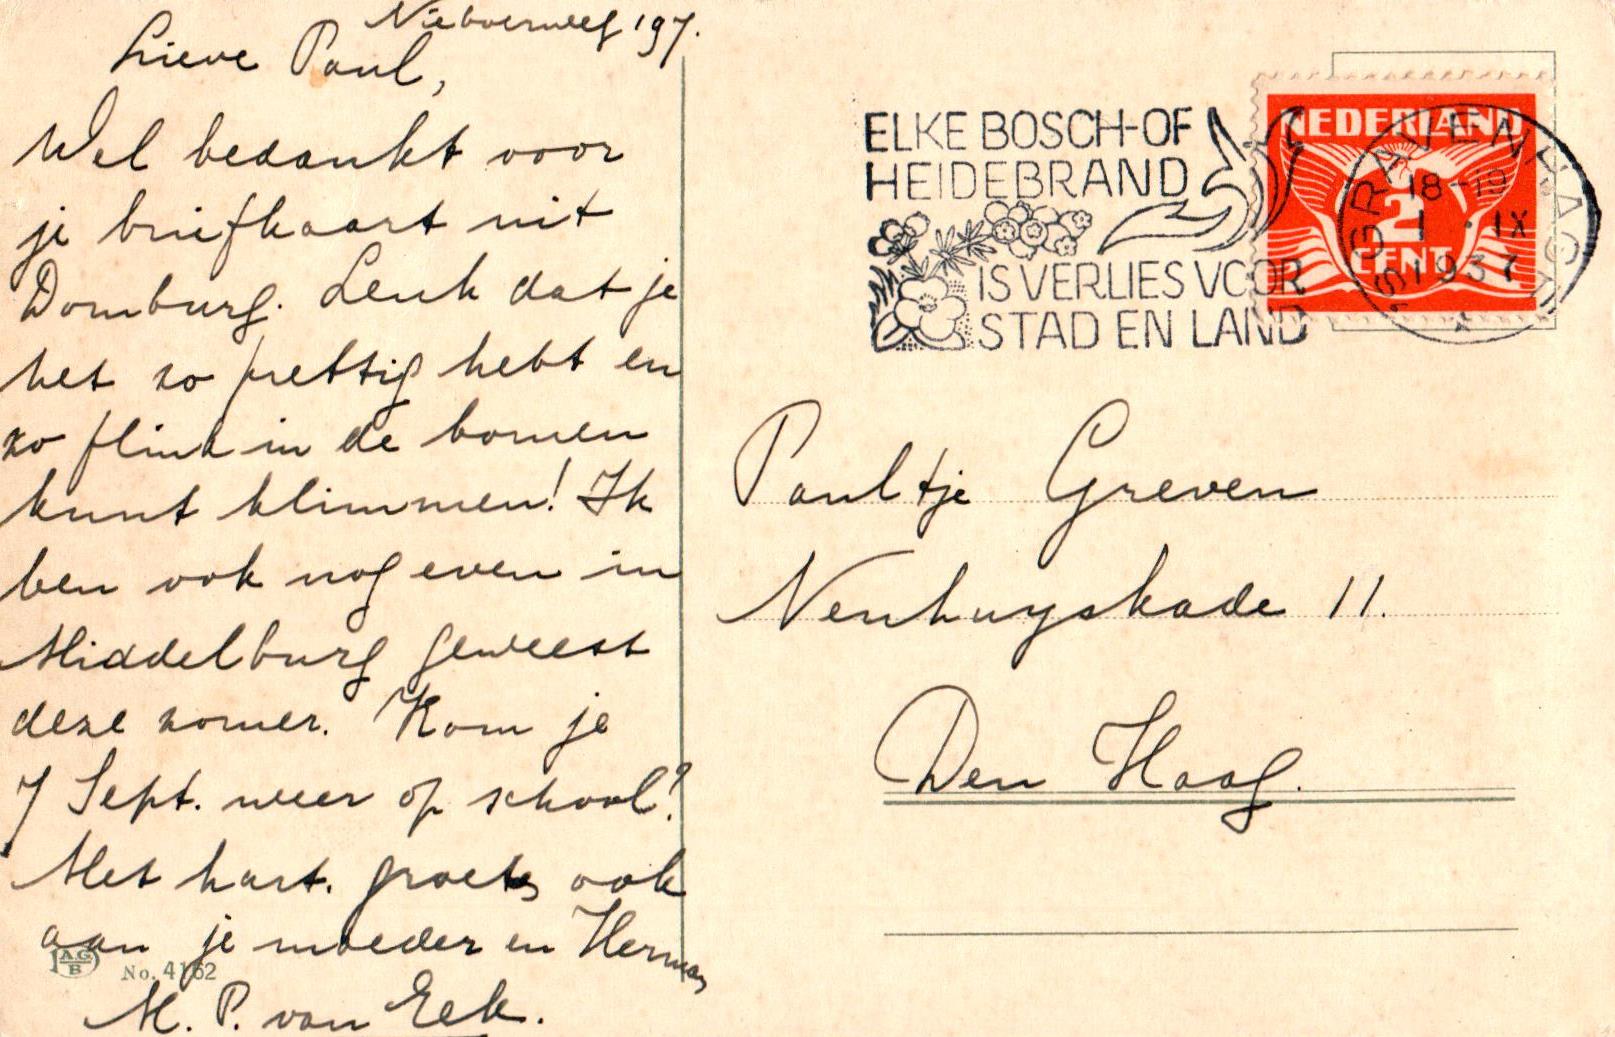 Nieboerweg 197.
Lieve Paul,
Wel bedankt voor
je briefkaart uit
Domburg. Leuk dat je
het zo prettig hebt en
zo flink in de bomen
kunt klimmen! Ik
ben ook nog even in
Middelburg geweest
deze zomer. Kom je
7 Sept. weer op school?
Met hart. groeten ook
aan je moeder en Herman
M. P. van Eck.
AGB
No. 4162
ELKE BOSCH-OF
HEIDEBRAND
IS VERLIES VOOR
STAD EN LAND
NEDERLAND
2
CENT
'S GRAVENHAGE
18-19
1 . IX
1937
Paultje Greven
Nenhuyskade 11.
Den Haag.